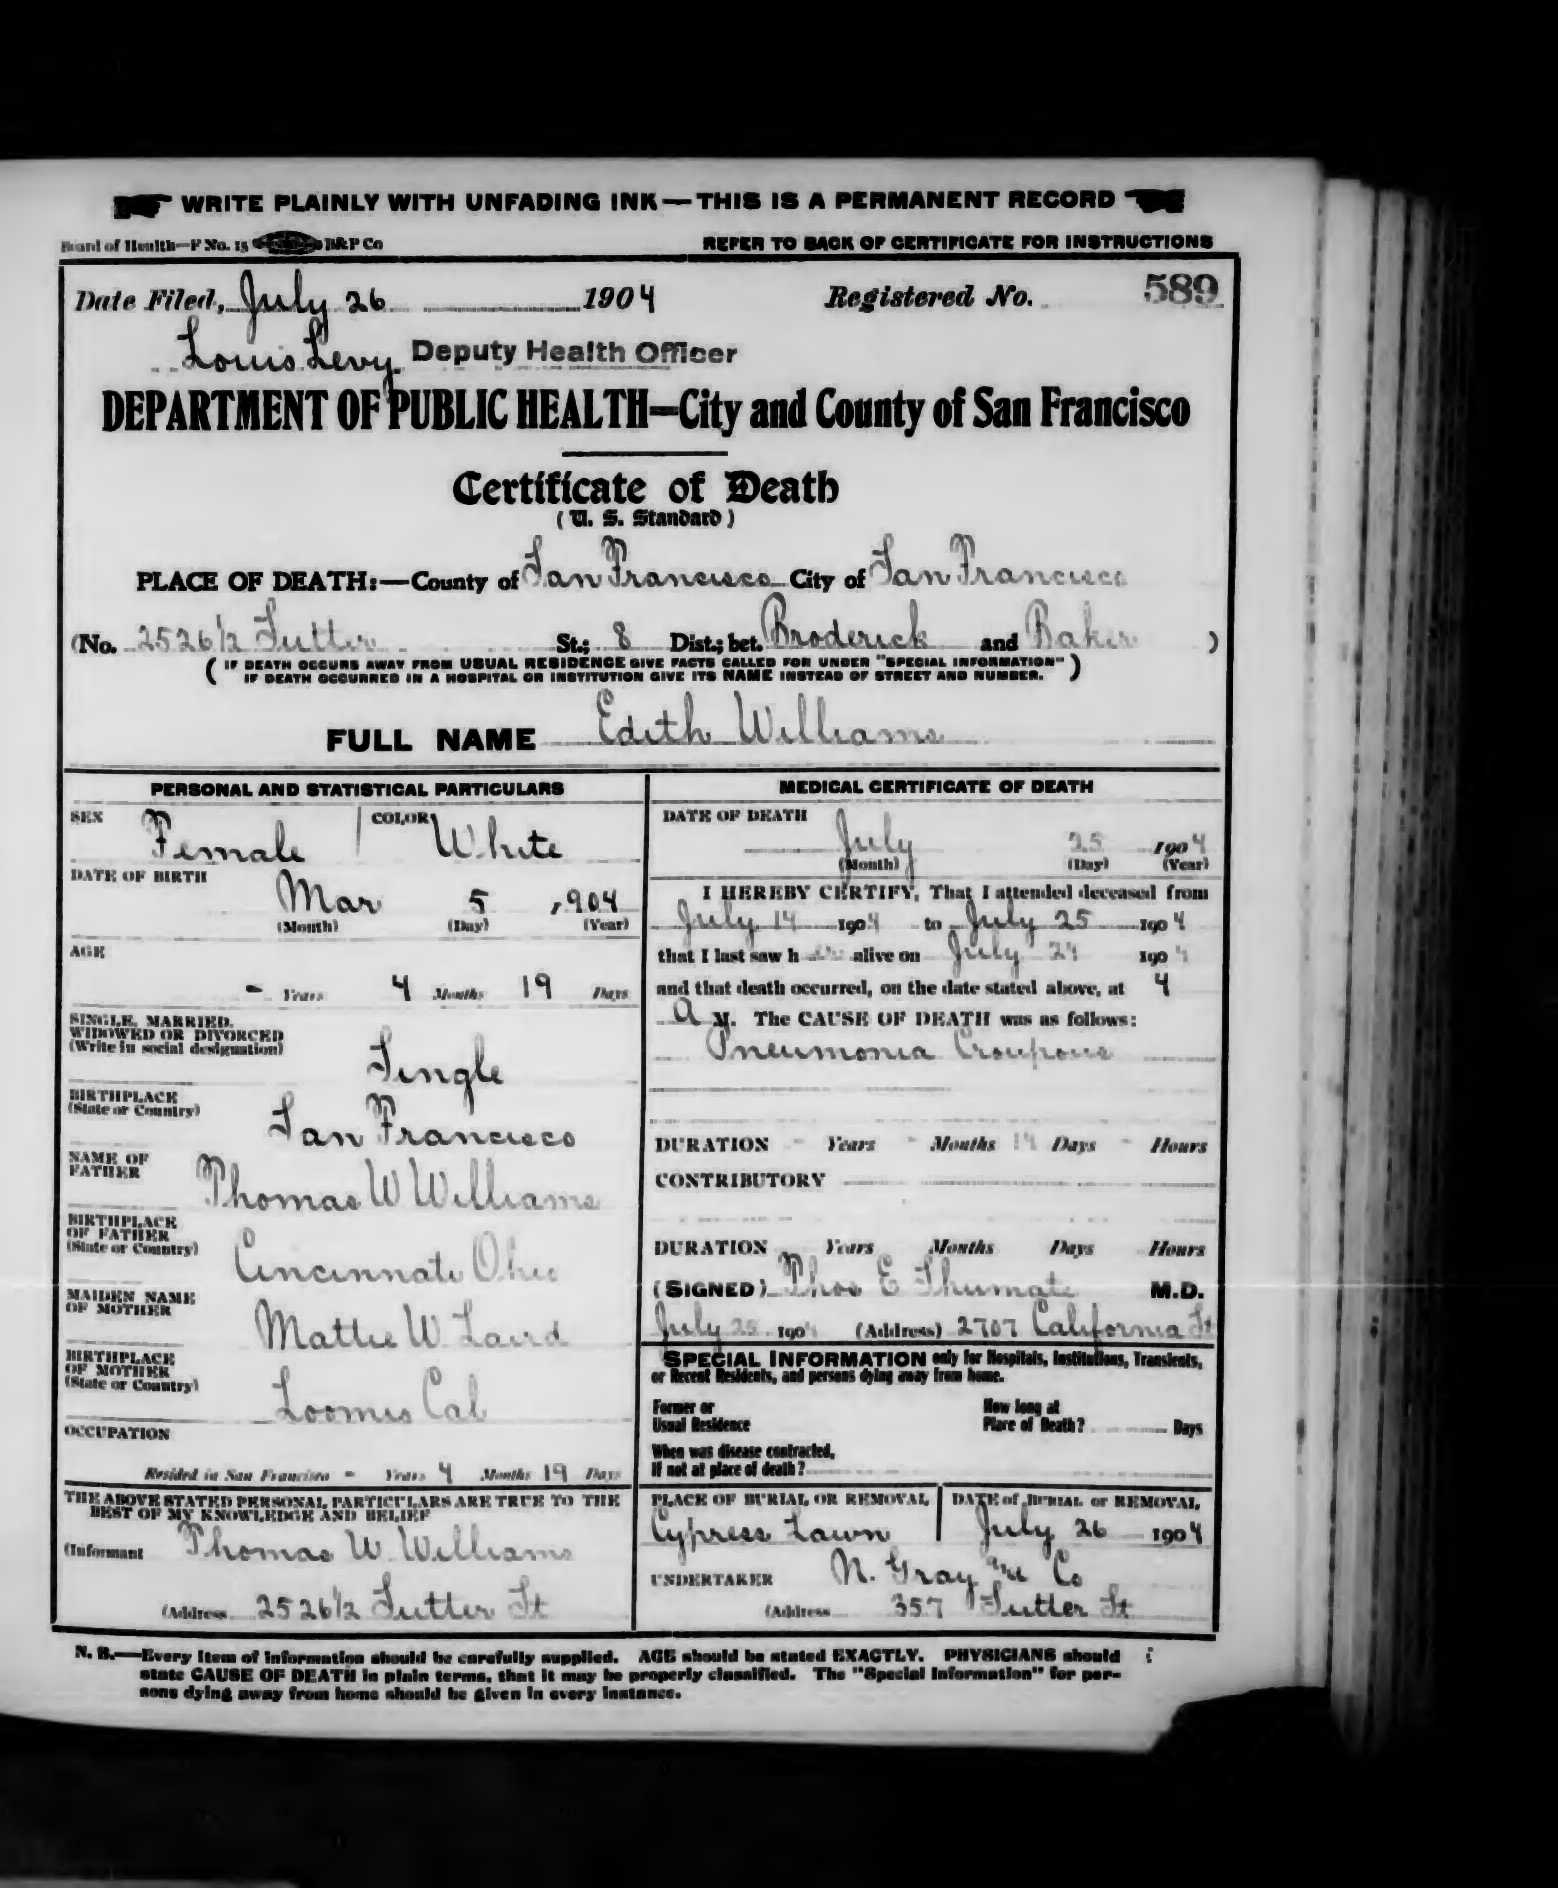 WRITE PLAINLY WITH UNFADING INK—THIS IS A PERMANENT RECORD
Board of Health—F No. 15 B&P Co REFER TO BACK OF CERTIFICATE FOR INSTRUCTIONS
Date Filed, July 26 1904 Registered No. 589
Louis Levy Deputy Health Officer
DEPARTMENT OF PUBLIC HEALTH—City and County of San Francisco
Certificate of Death
(U. S. Standard)
PLACE OF DEATH:—County of San Francisco City of San Francisco
(No. 2526½ Sutter St.; 8 Dist.; bet. Broderick and Baker )
( IF DEATH OCCURS AWAY FROM USUAL RESIDENCE GIVE FACTS CALLED FOR UNDER "SPECIAL INFORMATION"
IF DEATH OCCURRED IN A HOSPITAL OR INSTITUTION GIVE ITS NAME INSTEAD OF STREET AND NUMBER. )
FULL NAME Edith Williams
PERSONAL AND STATISTICAL PARTICULARS
SEX Female COLOR White
DATE OF BIRTH
Mar 5 , 904
(Month) (Day) (Year)
AGE
- Years 4 Months 19 Days
SINGLE, MARRIED,
WIDOWED OR DIVORCED
(Write in social designation)
Single
BIRTHPLACE
(State or Country)
San Francisco
NAME OF
FATHER
Thomas W Williams
BIRTHPLACE
OF FATHER
(State or Country)
Cincinnati Ohio
MAIDEN NAME
OF MOTHER
Mattie W. Laird
BIRTHPLACE
OF MOTHER
(State or Country)
Loomis Cal
OCCUPATION
Resided in San Francisco - Years 4 Months 19 Days
THE ABOVE STATED PERSONAL PARTICULARS ARE TRUE TO THE
BEST OF MY KNOWLEDGE AND BELIEF
(Informant Thomas W. Williams
(Address 2526½ Sutter St
MEDICAL CERTIFICATE OF DEATH
DATE OF DEATH
July 25 1904
(Month) (Day) (Year)
I HEREBY CERTIFY, That I attended deceased from
July 14 1904 to July 25 1904
that I last saw h alive on July 24 1904
and that death occurred, on the date stated above, at 4
A M. The CAUSE OF DEATH was as follows:
Pneumonia Croupous
DURATION - Years - Months 14 Days - Hours
CONTRIBUTORY
DURATION Years Months Days Hours
(SIGNED) Thos E Shumate M.D.
July 25 1904 (Address) 2707 California St
SPECIAL INFORMATION only for Hospitals, Institutions, Transients,
or Recent Residents, and persons dying away from home.
Former or
Usual Residence
How long at
Place of Death? Days
When was disease contracted,
If not at place of death?
PLACE OF BURIAL OR REMOVAL
Cypress Lawn
DATE of BURIAL or REMOVAL
July 26 1904
UNDERTAKER N. Gray and Co
(Address 357 Sutter St
N. B.—Every item of information should be carefully supplied. AGE should be stated EXACTLY. PHYSICIANS should
state CAUSE OF DEATH in plain terms, that it may be properly classified. The "Special Information" for per-
sons dying away from home should be given in every instance.